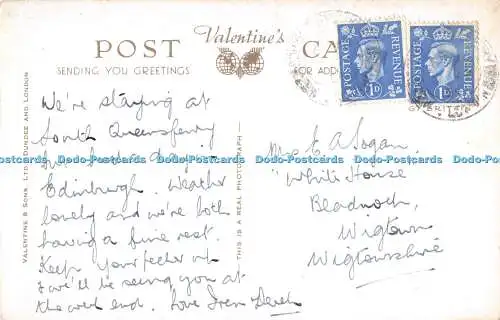 Valentine's
POST CA
SENDING YOU GREETINGS
FOR ADD
POSTAGE REVENUE 1D
POSTAGE REVENUE 1D
VALENTINE & SONS, LTD., DUNDEE AND LONDON
THIS IS A REAL PHOTOGRAPH
We're staying at
South Queensferry
day in
Edinburgh. Weather
lovely and we're both
having a fine rest.
Keep your pecker up
we'll be seeing you at
the week end. Love
Logan.
"White House
Bladnoch,
Wigtown
Wigtownshire
Dodo-Postcards Dodo-Postcards Dodo-Postcards Dodo-Postcards Dodo-Postcards Dodo-Postcards Dodo-Postcards